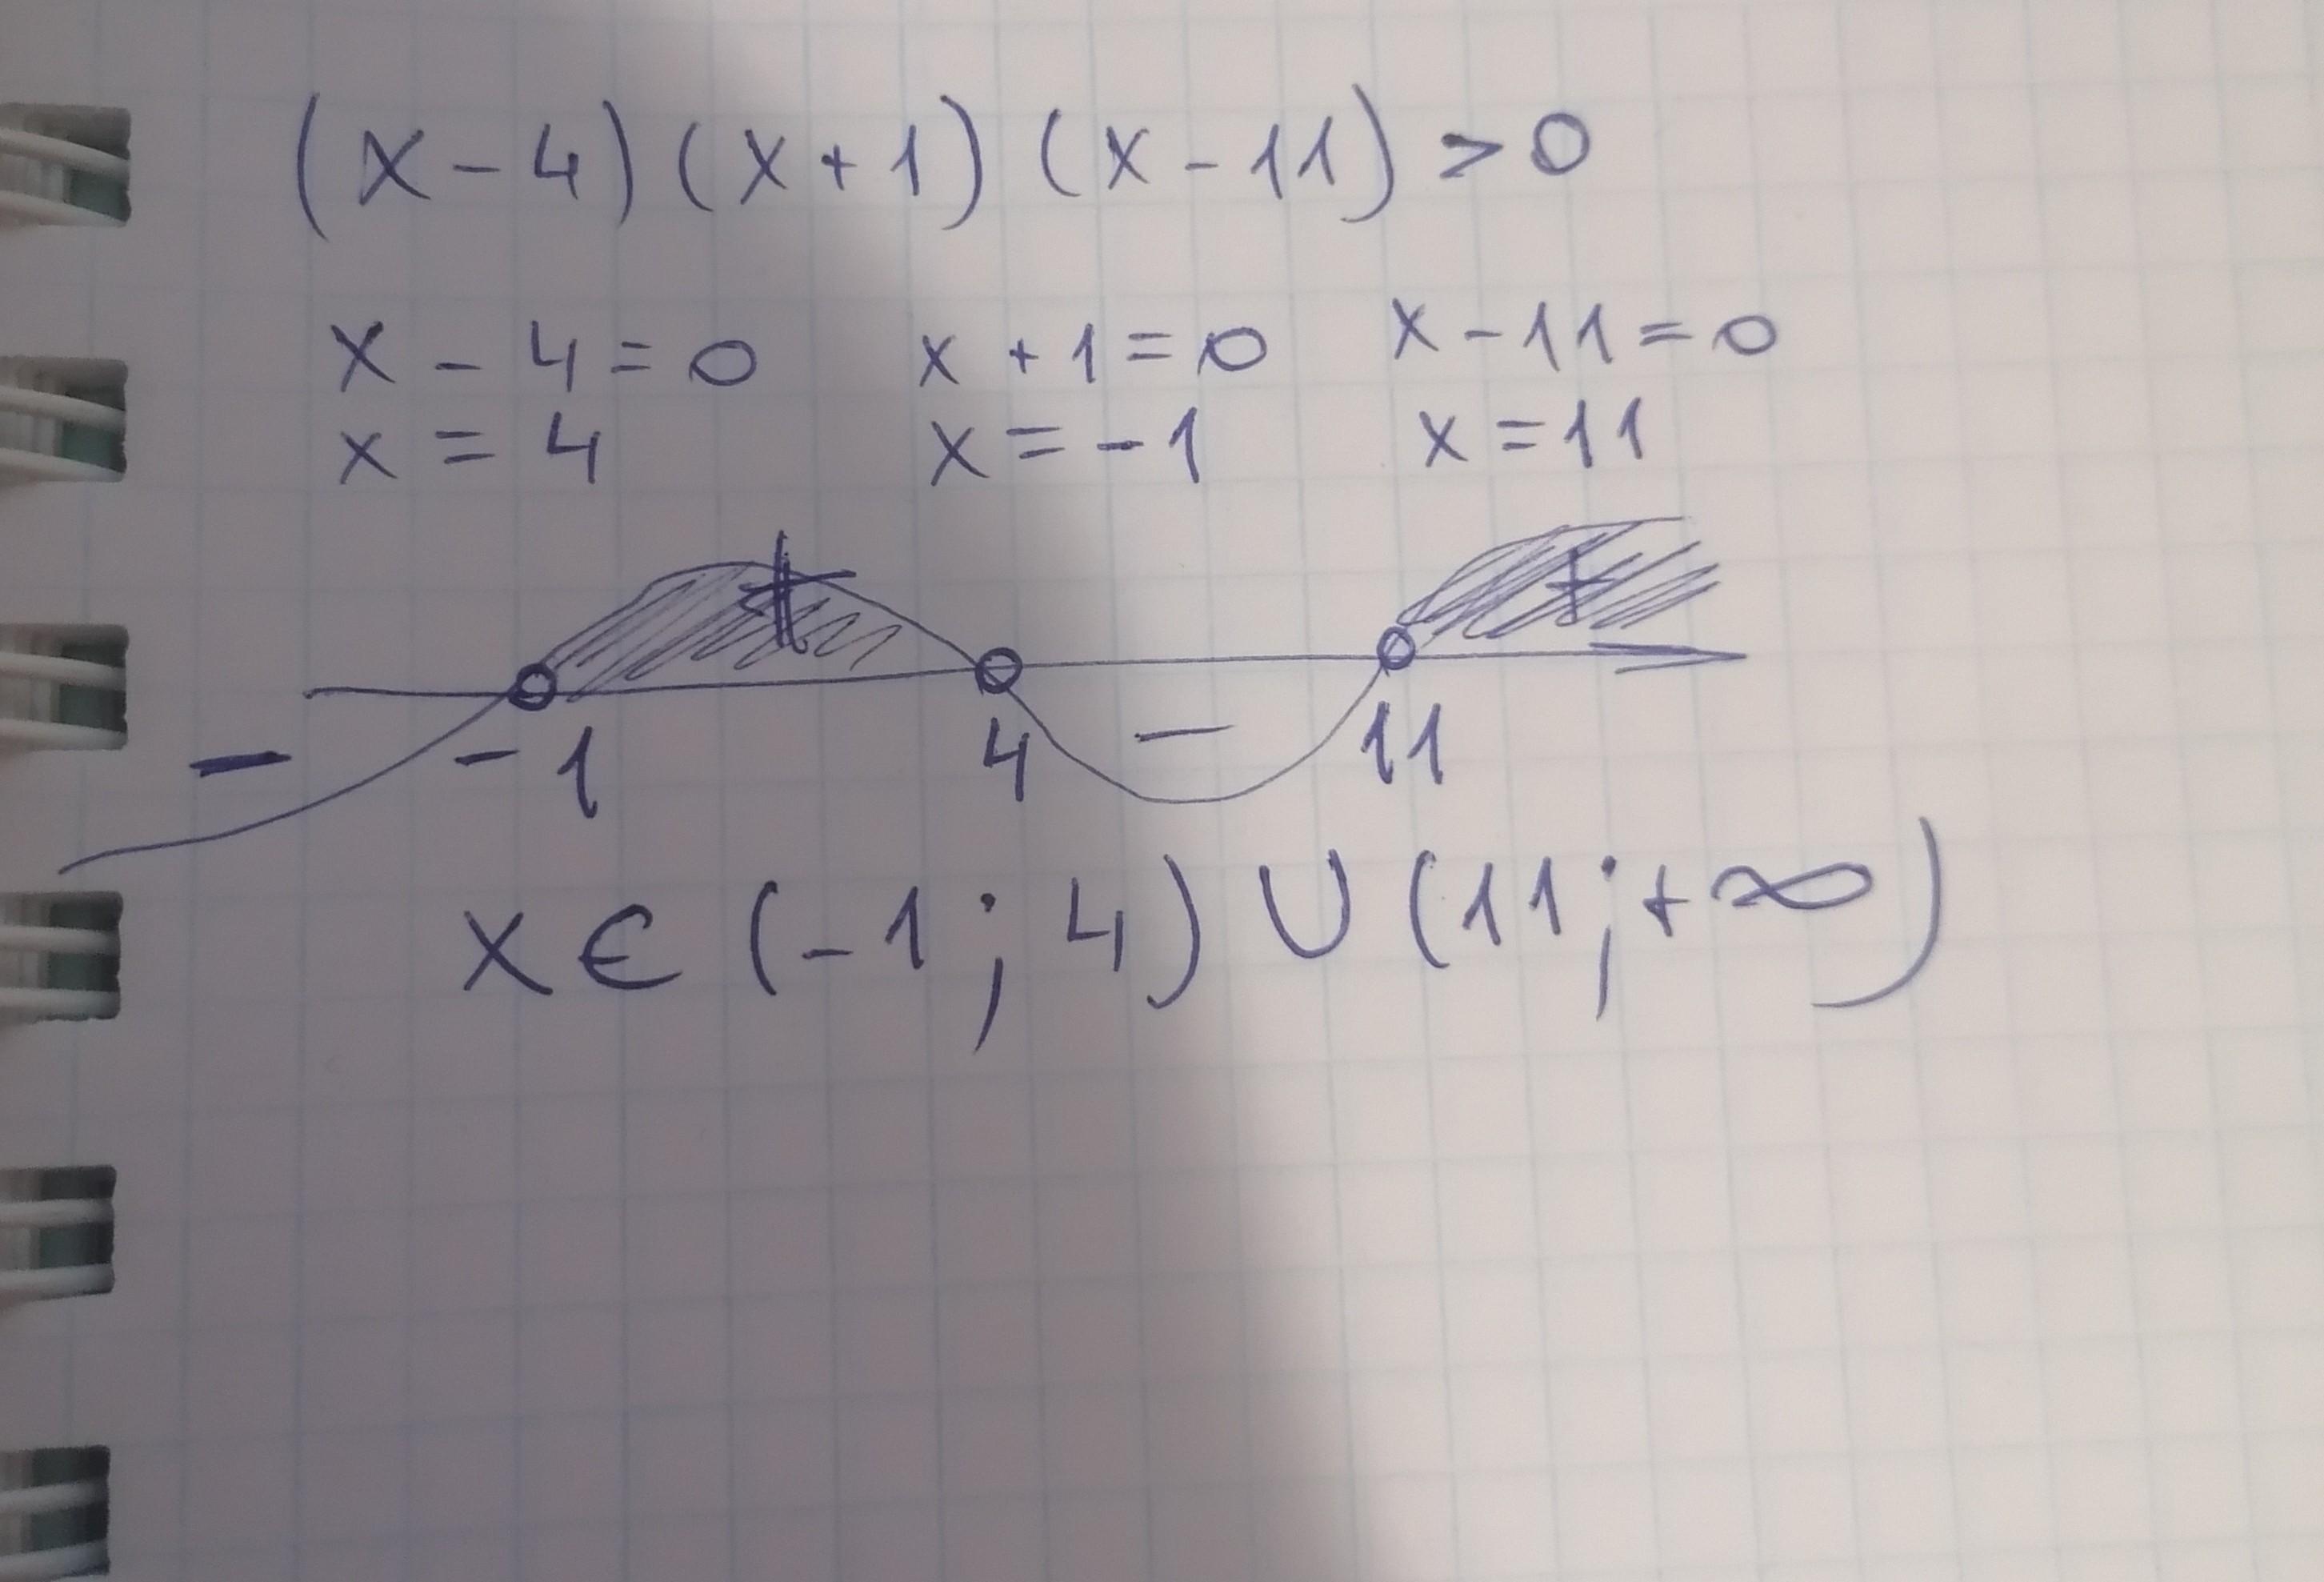 (x - 4) (x + 1) (x - 11) > 0
x - 4 = 0 x + 1 = 0 x - 11 = 0
x = 4 x = -1 x = 11
+ +
- -
-1 4 11
x ∈ (-1 ; 4) ∪ (11 ; +∞)